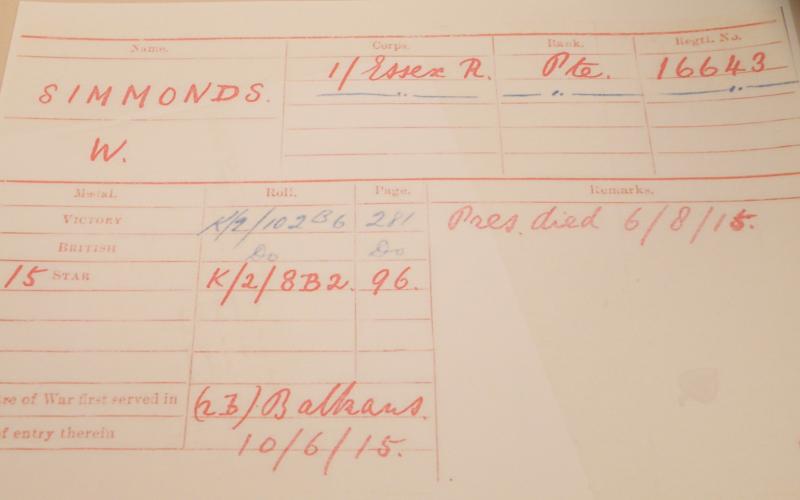 Name. Corps. Rank. Regtl. No.
SIMMONDS. 1/Essex R. Pte. 16643
W.
Medal. Roll. Page. Remarks.
VICTORY K/2/102B6 281 Pres. died 6/8/15.
BRITISH Do Do
15 STAR K/2/8B2. 96.
re of War first served in (2B) Balkans.
of entry therein 10/6/15.